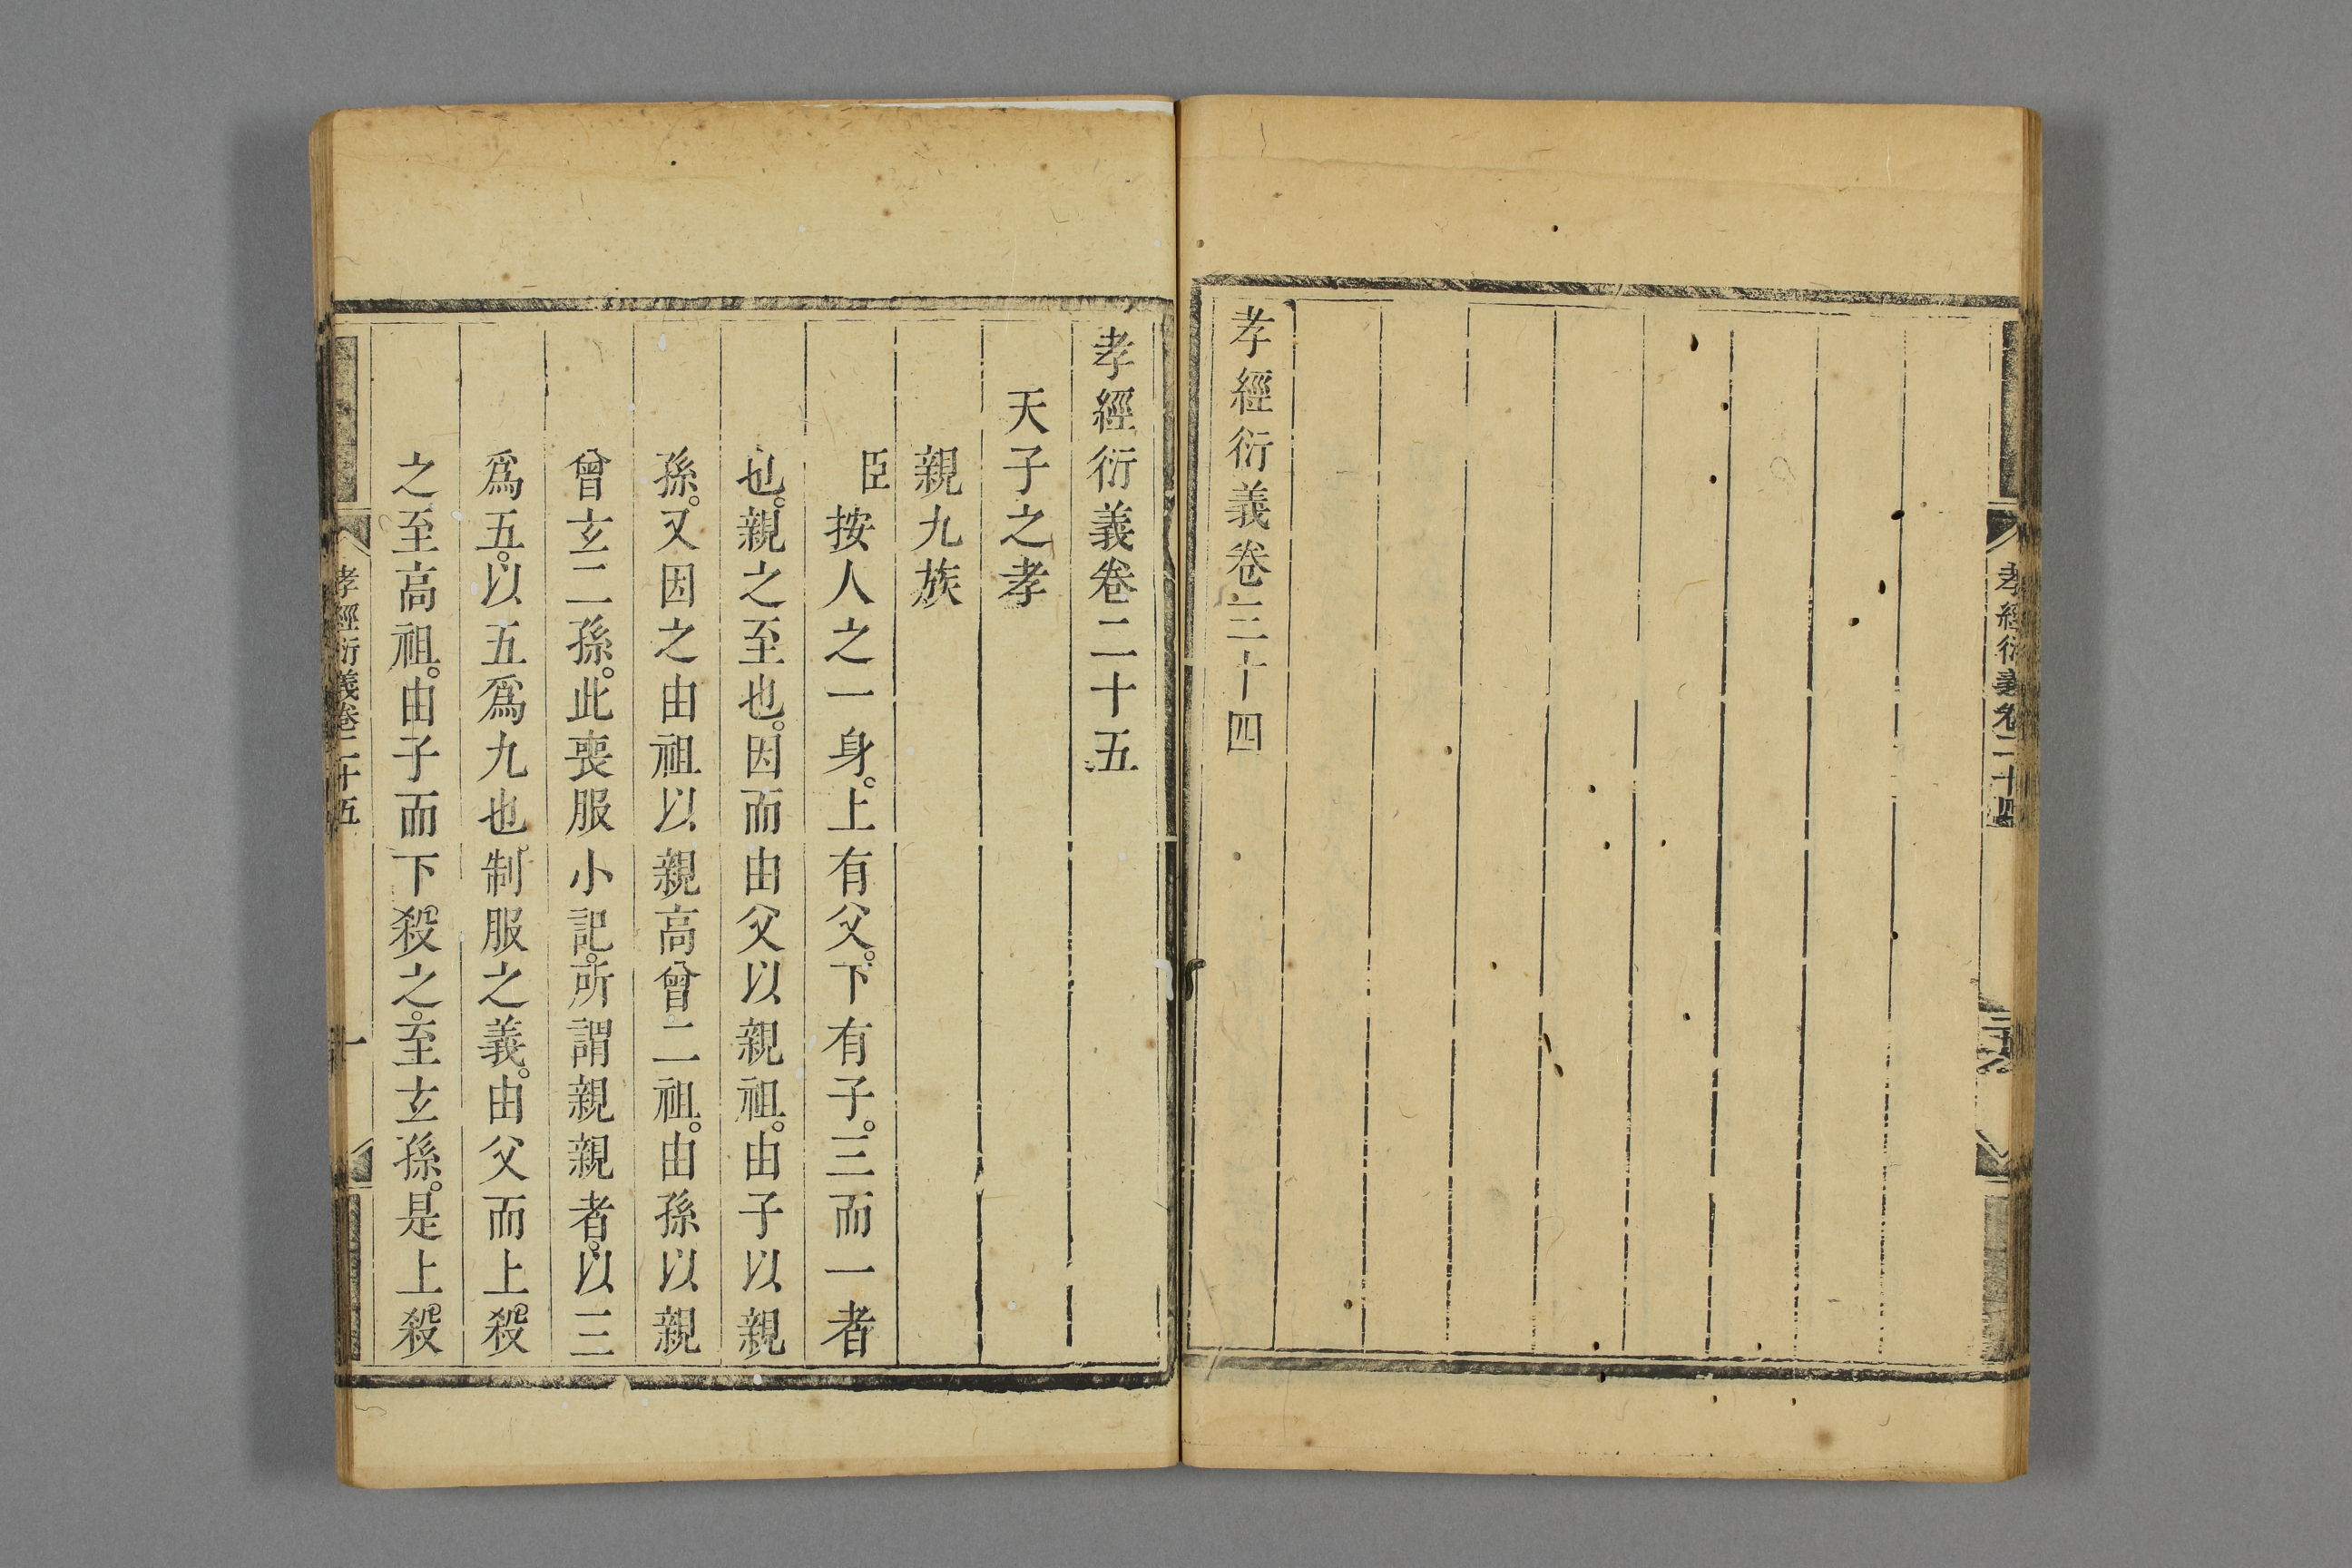 孝經衍義卷二十四
孝經衍義卷二十四
孝經衍義卷二十五
天子之孝
親九族
臣按人之一身。上有父。下有子。三而一者
也。親之至也。因而由父以親祖。由子以親
孫。又因之由祖以親高曾二祖。由孫以親
曾玄二孫。此喪服小記。所謂親親者。以三
爲五。以五爲九也。制服之義。由父而上殺
之至高祖。由子而下殺之。至玄孫。是上殺
孝經衍義卷二十五
一